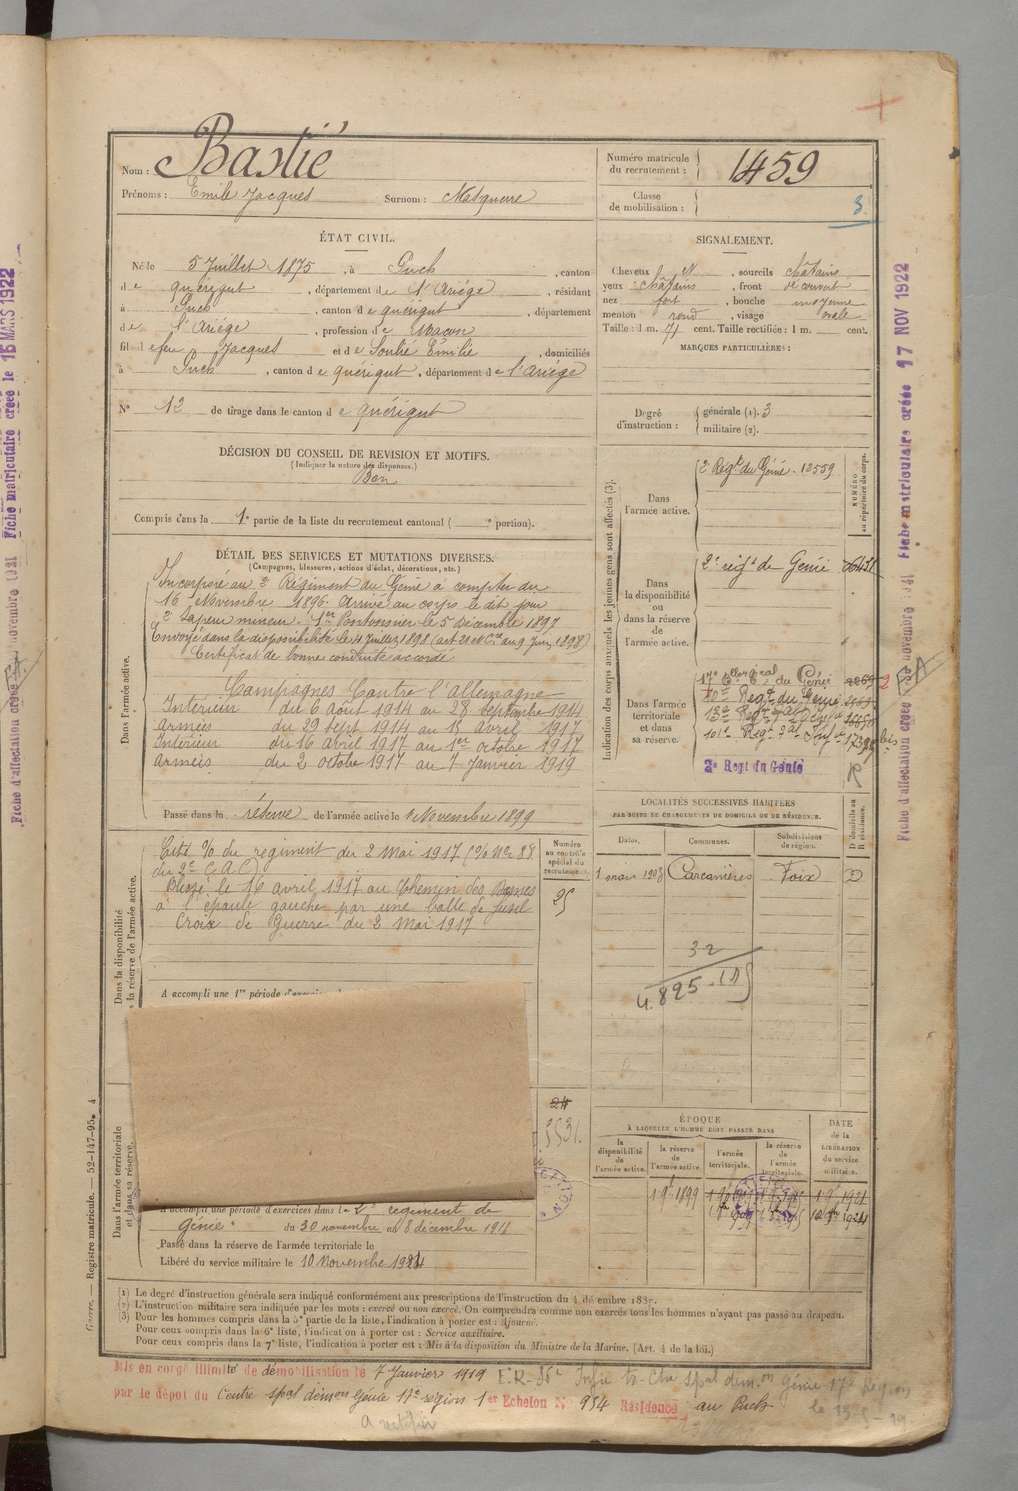 Nom : Bastié
Prénoms : Emile Jacques Surnom : Masquerre
Numéro matricule du recrutement : 1459
Classe de mobilisation : 3
ÉTAT CIVIL.
Né le 5 Juillet 1875, à Puch, canton
de quérigut, département de l'Ariège, résidant
à Puch, canton de quérigut, département
de l'Ariège, profession de Maçon
fils de feu Jacques et de Soulié Emilie, domiciliés
à Puch, canton de quérigut, département de l'Ariège
N° 12 de tirage dans le canton de quérigut
SIGNALEMENT.
Cheveux N, sourcils châtains
yeux châtains, front découvert
nez fort, bouche moyenne
menton rond, visage ovale
Taille : 1 m. 71 cent. Taille rectifiée : 1 m. cent.
MARQUES PARTICULIÈRES :
Degré d'instruction : générale (1). 3
militaire (2).
DÉCISION DU CONSEIL DE REVISION ET MOTIFS.
(Indiquer la nature des dispenses.)
Bon
Compris dans la 1e partie de la liste du recrutement cantonal ( e portion).
DÉTAIL DES SERVICES ET MUTATIONS DIVERSES.
(Campagnes, blessures, actions d'éclat, décorations, etc.)
Dans l'armée active.
Incorporé au 2e Régiment du Génie à compter du
16 Novembre 1896. Arrivé au corps le dit jour
2e Sapeur mineur. 1er Pontonnier le 5 Décembre 1897
Envoyé dans la disponibilité le 4 Juillet 1898
Certificat de bonne conduite accordé
Campagnes Contre l'allemagne
Intérieur du 6 août 1914 au 28 septembre 1914
armées du 29 sept 1914 au 15 avril 1917
Intérieur du 16 avril 1917 au 1er octobre 1917
armées du 2 octobre 1917 au 7 Janvier 1919
Passé dans la réserve de l'armée active le 1 Novembre 1899
Indication des corps auxquels les jeunes gens sont affectés (3).
NUMÉRO au répertoire du corps.
Dans l'armée active.
2e Régt du Génie - 12559
Dans la disponibilité ou dans la réserve de l'armée active.
2e régt de Génie
Dans l'armée territoriale et dans sa réserve.
2e Regt du Génie
R
LOCALITÉS SUCCESSIVES HABITÉES
PAR SUITE DE CHANGEMENTS DE DOMICILE OU DE RÉSIDENCE.
D domicile ou R résidence.
Dates. Communes. Subdivisions de région.
1 mars 1903 Carcanières Foix D
32
Dans la disponibilité
la réserve de l'armée active.
Numéro au contrôle spécial du recrutement.
25
Cité % du régiment du 2 Mai 1917 (% N° 88
du 2e C.A.C)
Blessé le 16 avril 1917 au Chemin des Dames
à l'épaule gauche par une balle de fusil
Croix de Guerre du 2 Mai 1917
A accompli une 1re période d'exercices
Dans l'armée territoriale et dans sa réserve.
ÉPOQUE
À LAQUELLE L'HOMME DOIT PASSER DANS
la disponibilité de l'armée active. la réserve de l'armée active. l'armée territoriale. la réserve de l'armée territoriale.
DATE de la LIBÉRATION du service militaire.
A accompli une période d'exercices dans le 2e régiment de
Génie du 30 novembre au 8 décembre 1911
Passé dans la réserve de l'armée territoriale le
Libéré du service militaire le 10 Novembre 1924
Guerre. — Registre matricule. — 52-147-95. 4
(1) Le degré d'instruction générale sera indiqué conformément aux prescriptions de l'instruction du 4 décembre 1889.
(2) L'instruction militaire sera indiquée par les mots : exercé ou non exercé. On comprendra comme non exercés tous les hommes n'ayant pas passé au drapeau.
(3) Pour les hommes compris dans la 5e partie de la liste, l'indication à porter est : Ajourné.
Pour ceux compris dans la 6e liste, l'indication à porter est : Service auxiliaire.
Pour ceux compris dans la 7e liste, l'indication à porter est : Mis à la disposition du Ministre de la Marine. (Art. 4 de la loi.)
Mis en congé illimité de démobilisation le 7 Janvier 1919
par le dépot du Centre spal démon Génie 17e région 1er Echelon N° 954 Résidence au Puch
Fiche matriculaire créée le 15 MARS 1922
Fiche matriculaire créée 17 NOV 1922